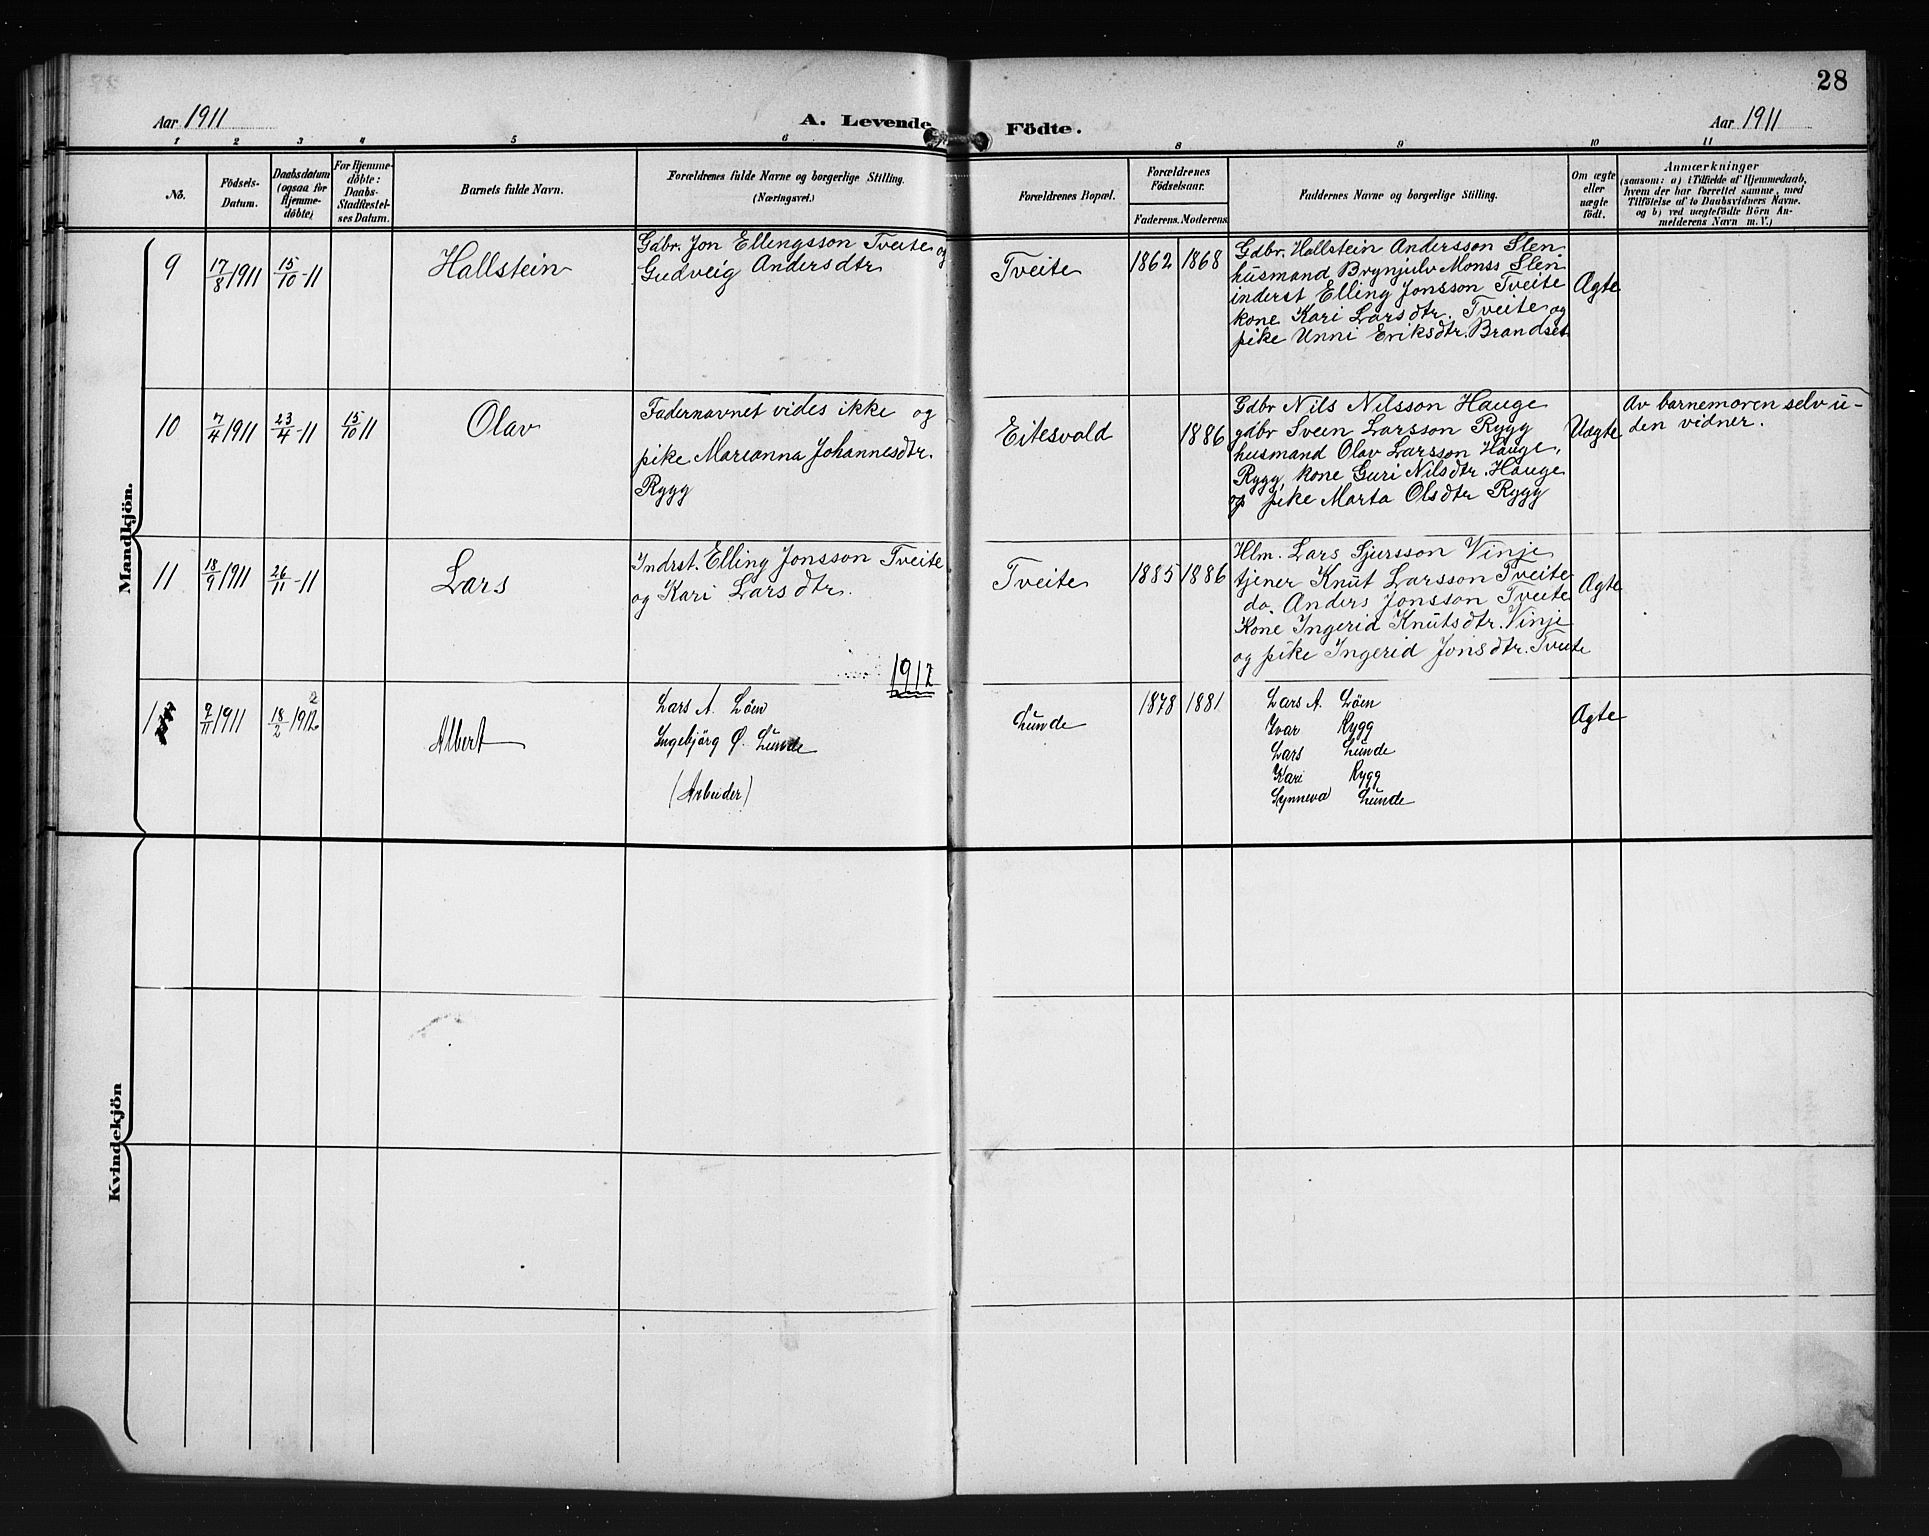 28
Aar 1911
A. Levende
Födte.
Aar 1911
1 2 3 4 5 6 8 9 10 11
No.
Födsels-
Datum.
Daabsdatum
(ogsaa for
Hjemme-
döbte)
For Hjemme-
döbte:
Daabs-
Stadfæstel-
ses Datum.
Barnets fulde Navn.
Forældrenes fulde Navne og borgerlige Stilling.
(Næringsvei.)
Forældrenes Bopæl.
Forældrenes
Födselsaar.
Faderens. Moderens.
Faddernes Navne og borgerlige Stilling.
Om ægte
eller
uægte
födt.
Anmærkninger
(saasom: a) i Tilfælde af Hjemmedaab,
hvem der har forrettet samme, med
Tilföielse af to Daabsvidners Navne.
og b) ved uægtefödte Börn An-
melderens Navn m. V.)
Mandkjön.
9
17/8 1911
15/10-11
Hallstein
Gdbr. Jon Ellingsson Tveite og
Gudveig Andersdtr
Tveite
1862 1868
Gdbr. Hallstein Andersson Slen
husmand Brynjulv Monss Slen
inderst Elling Jonsson Tveite
kone Kari Larsdtr. Tveite og
pike Unni Eriksdtr. Brandset
Ægte
10
7/4 1911
23/4-11
15/10 11
Olav
Fadernavnet vides ikke og
pike Marianna Johannesdtr.
Rygg
Eitesvold
1886
Gdbr Nils Nilsson Hauge
gdbr Svein Larsson Rygg
husmand Olav Larsson Hauge,
Rygg, kone Guri Nilsdtr. Hauge
og pike Marta Olsdtr Rygg
Uægte
Av barnemoren selv u-
den vidner.
11
18/9 1911
26/11-11
Lars
Indrst. Elling Jonsson Tveite
og Kari Larsdtr.
Tveite
1885 1886
Hlm. Lars Sjursson Vinje
tjener Knut Larsson Tveite
do. Anders Jonsson Tveite
Kone Ingerid Knutsdtr. Vinje
og pike Ingerid Jonsdtr. Tveite
Ægte
1912
1
9/11 1911
18/2 1912
2
Albert
Lars A. Löen
Ingebjörg Ø. Lunde
(Arbeider)
Lunde
1878 1881
Lars A. Löen
Ivar Rygg
Lars Lunde
Kari Rygg
Synneva Lunde
Ægte
Kvindekjön